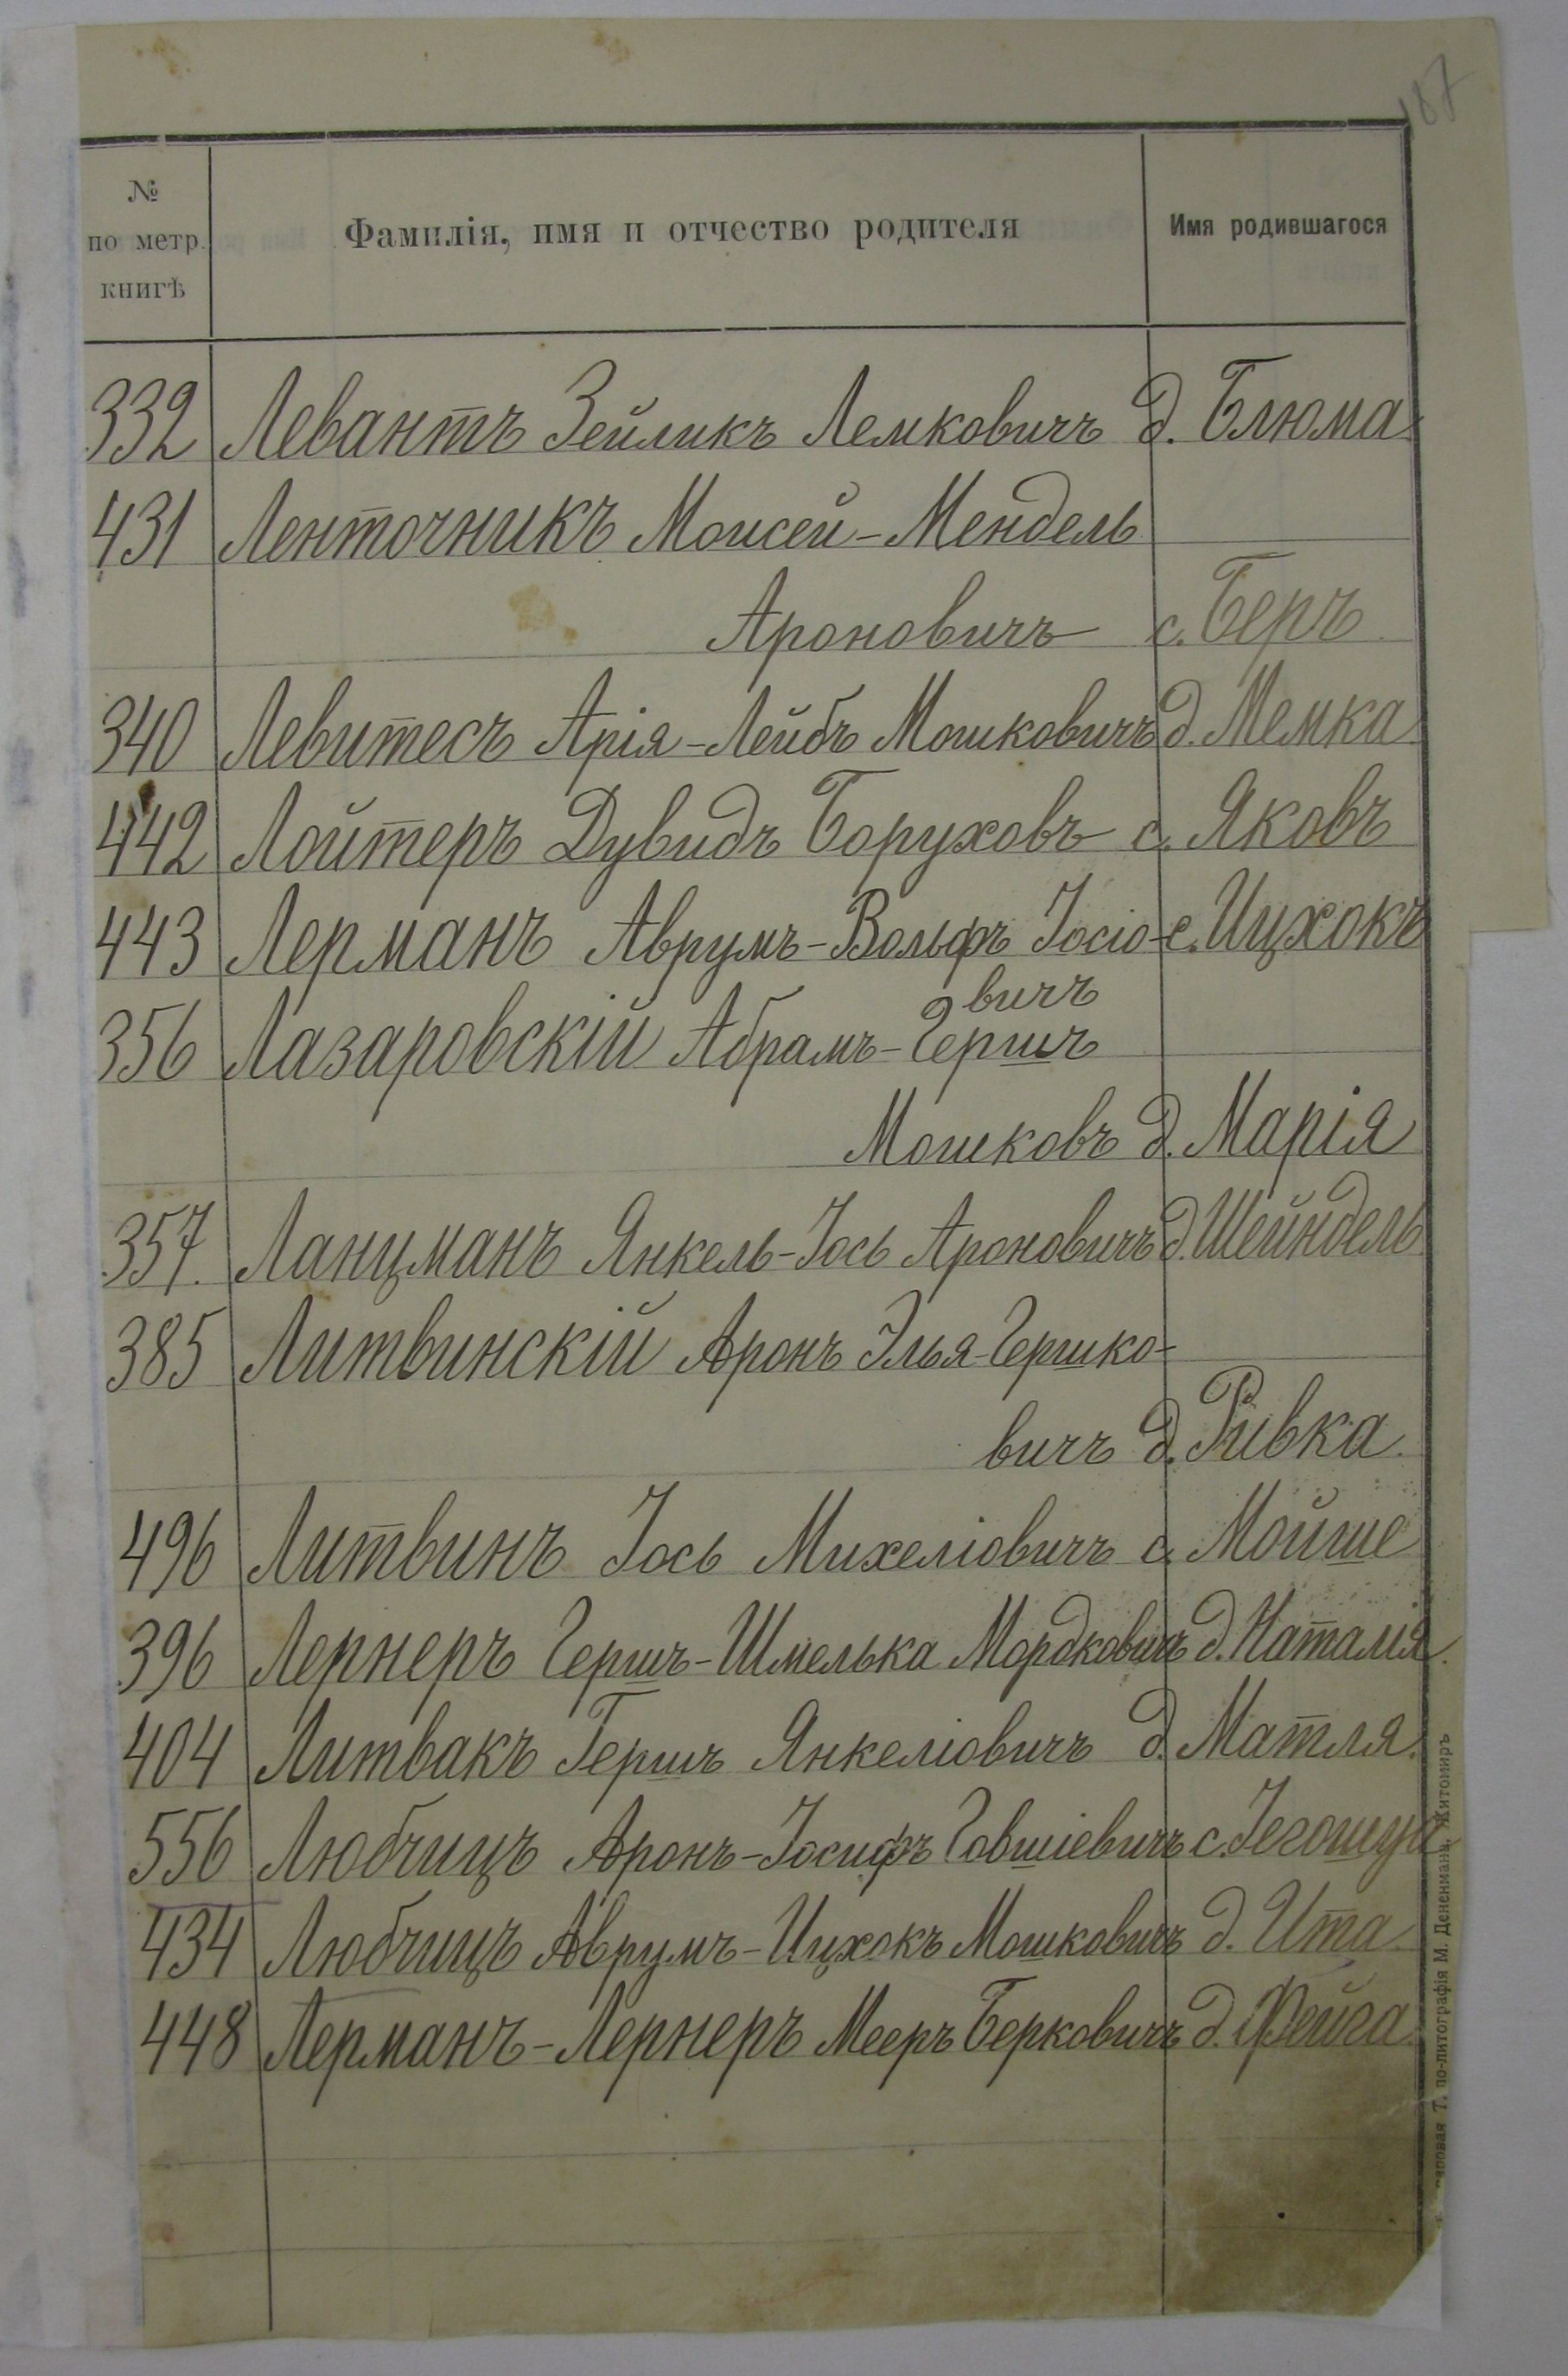 187
№
по метр.
книгѣ
Фамилія, имя и отчество родителя
Имя родившагося
332 Левантъ Зейликъ Лемковичъ д. Блюма
431 Ленточникъ Моисей-Мендель
Ароновичъ с. Беръ
340 Левитесъ Арія-Лейбъ Мошковичъ д. Мемка
442 Лойтеръ Дувидъ Боруховъ с. Яковъ
443 Лерманъ Аврумъ-Вольфъ Іосіо- с. Ицхокъ
вичъ
356 Лазаровскій Абрамъ-Гершъ
Мошковъ д. Марія
357. Ланцманъ Янкель-Іось Ароновичъ д. Шейндель
385 Литвинскій Аронъ Элья-Гершко-
вичъ д. Ривка
496 Литвинъ Іось Михеліовичъ с. Мойше
396 Лернеръ Гершъ-Шмелька Мордковичъ д. Наталія
404 Литвакъ Гершъ Янкеліовичъ д. Матля
556 Любчицъ Аронъ-Іосифъ Говшіевичъ с. Іегошуа
434 Любчицъ Аврумъ-Ицхокъ Мошковичъ д. Ита
448 Лерманъ-Лернеръ Мееръ Берковичъ д. Фейга
Т. по-литографія М. Дененмана, Житомиръ